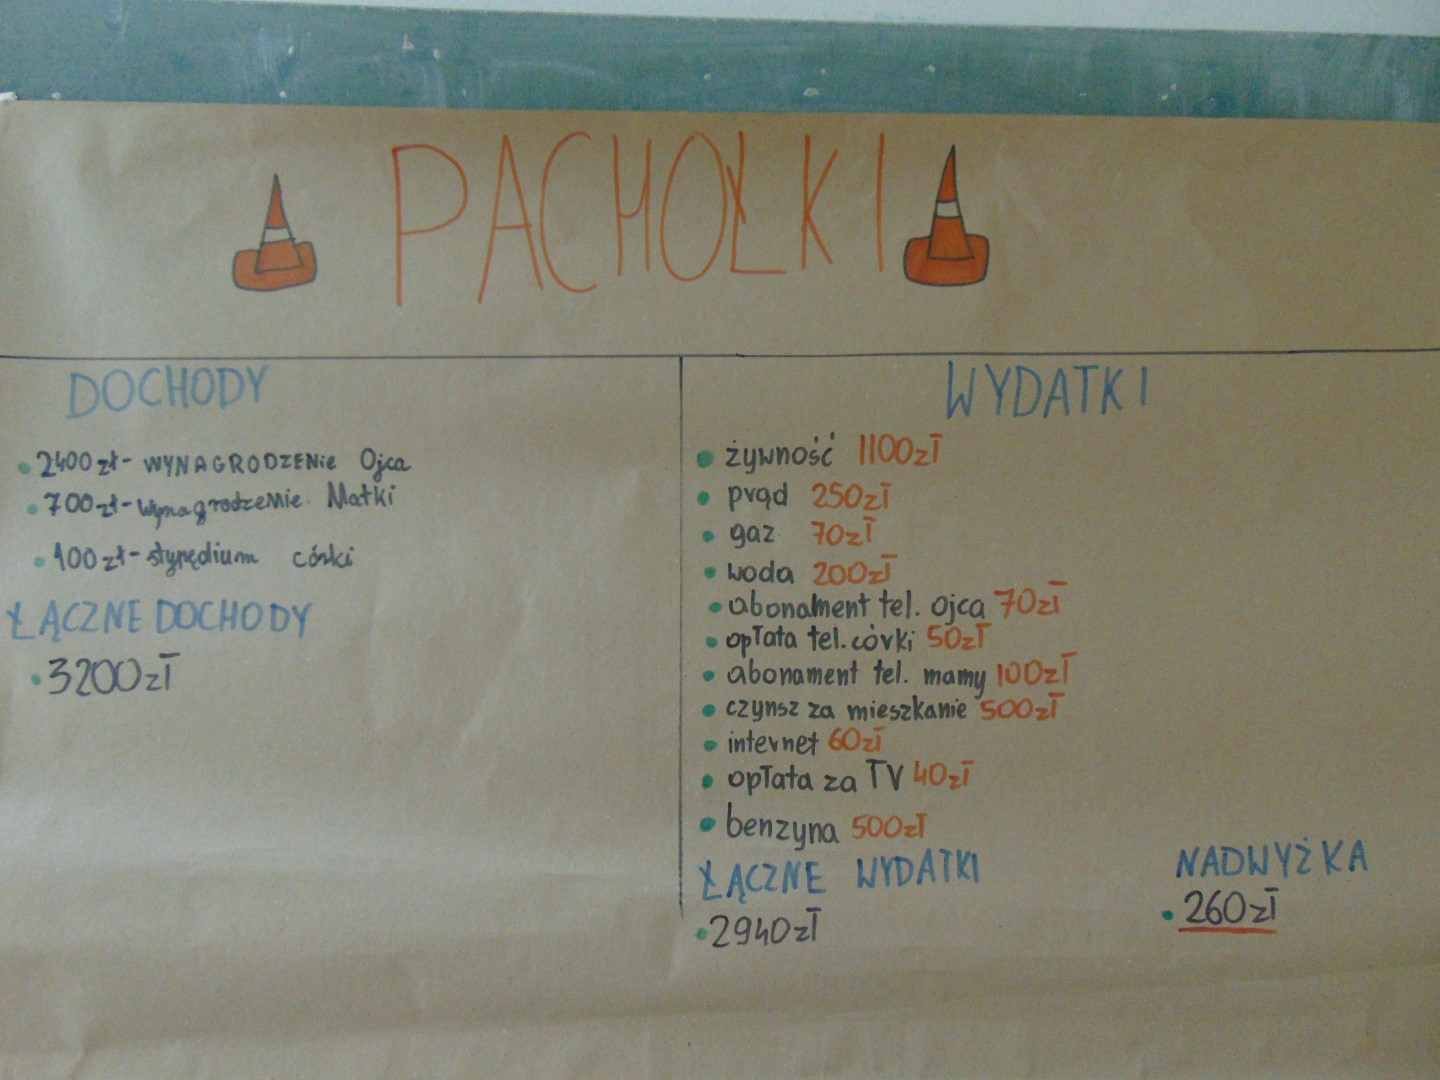 PACHOŁKI
DOCHODY
• 2400 zł - WYNAGRODZENie Ojca
• 700 zł - wynagrodzenie Matki
• 100 zł - stypędium córki
ŁĄCZNE DOCHODY
• 3200 zł
WYDATKI
• żywność 1100 zł
• prąd 250 zł
• gaz 70 zł
• woda 200 zł
• abonament tel. ojca 70 zł
• opłata tel. córki 50 zł
• abonament tel. mamy 100 zł
• czynsz za mieszkanie 500 zł
• internet 60 zł
• opłata za TV 40 zł
• benzyna 500 zł
ŁĄCZNE WYDATKI
• 2940 zł
NADWYŻKA
• 260 zł